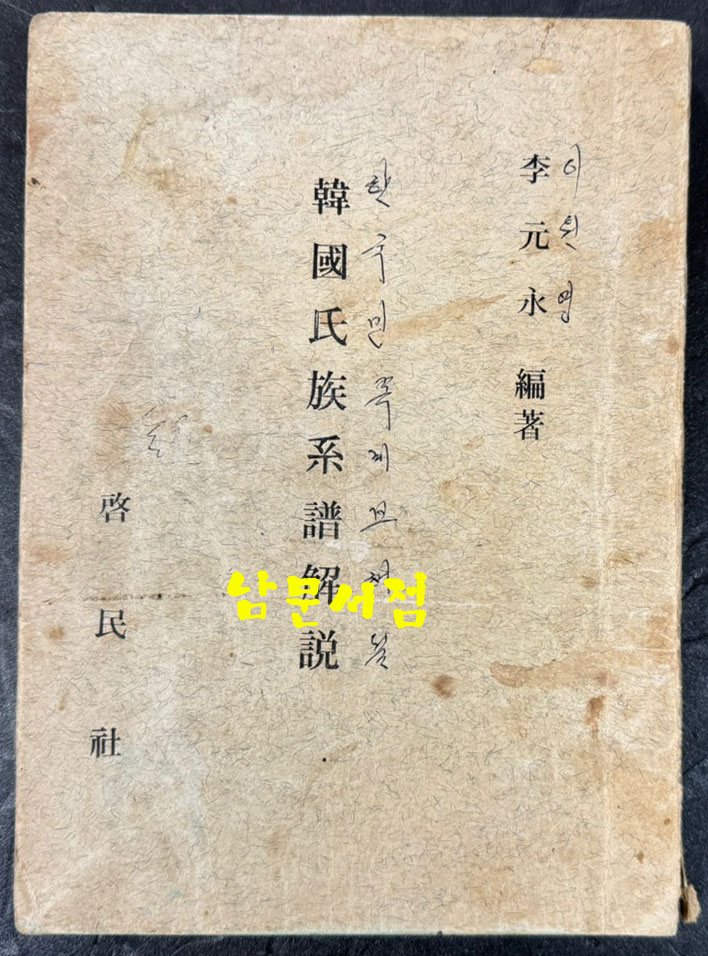 李元永 編著
이원영
韓國氏族系譜解説
한국민족계보해설
啓民社
남문서점